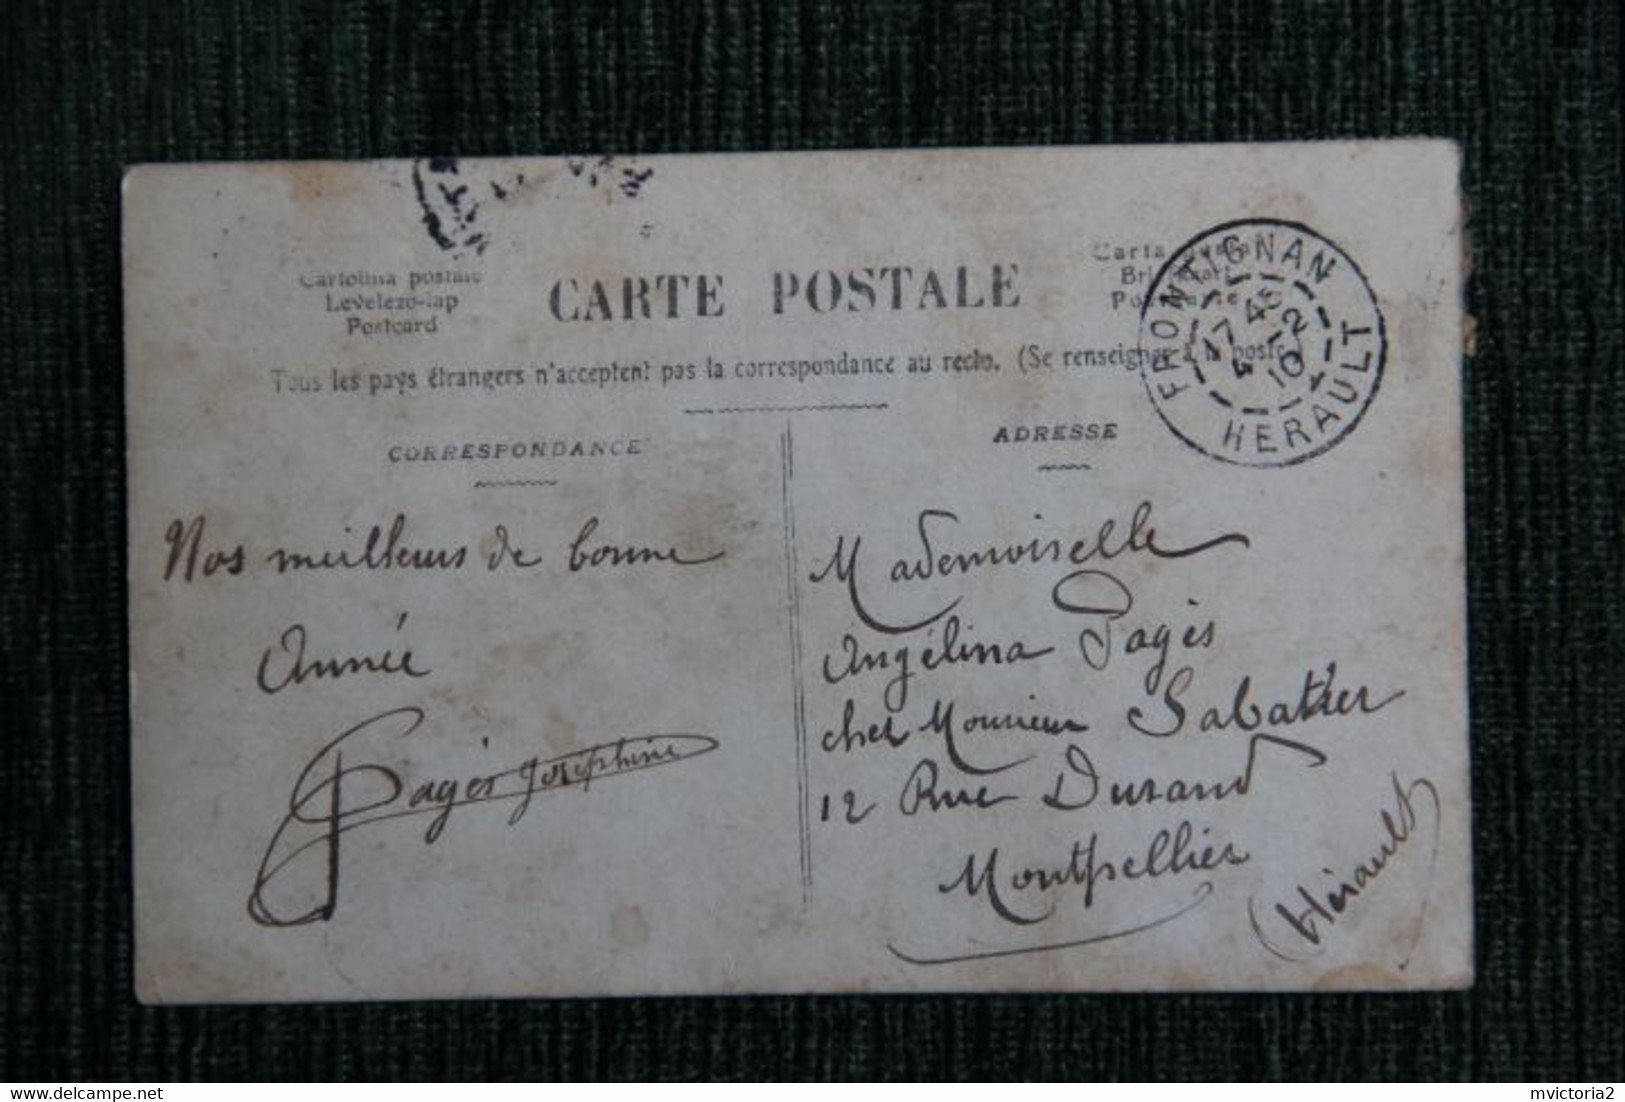 Cartolina postale
Levelezo-lap
Postcard
CARTE POSTALE
Carta
Tous les pays étrangers n'acceptent pas la correspondance au recto. (Se renseigner à la poste
FRONTIGNAN
17 45
4 12
10
HERAULT
CORRESPONDANCE
Nos meilleurs de bonne
Année
Pagès Joséphine
ADRESSE
Mademoiselle
Angélina Pagès
chez Monsieur Sabatier
12 Rue Durand
Montpellier
(Hérault)
mvictoria2